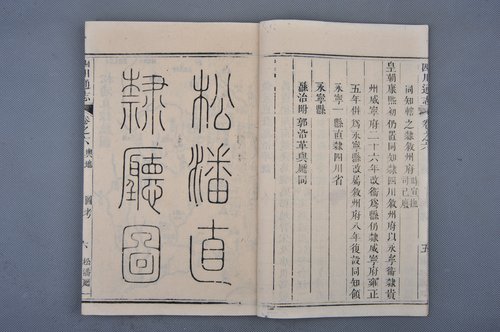 四川通志
卷之六
五
同知轄之隸敘州府
皇朝康熙初仍置同知隸四川敘州府以永寧衛隸貴
州威寧府二十六年改衛爲縣仍隸威寧府雍正
五年併爲永寧縣改屬敘州府八年復設同知領
永寧一縣直隸四川省
永寧縣
縣治附郭沿革與廳同
松潘直
隸廳圖
四川通志
卷之六 輿地 圖考
六 松潘廳